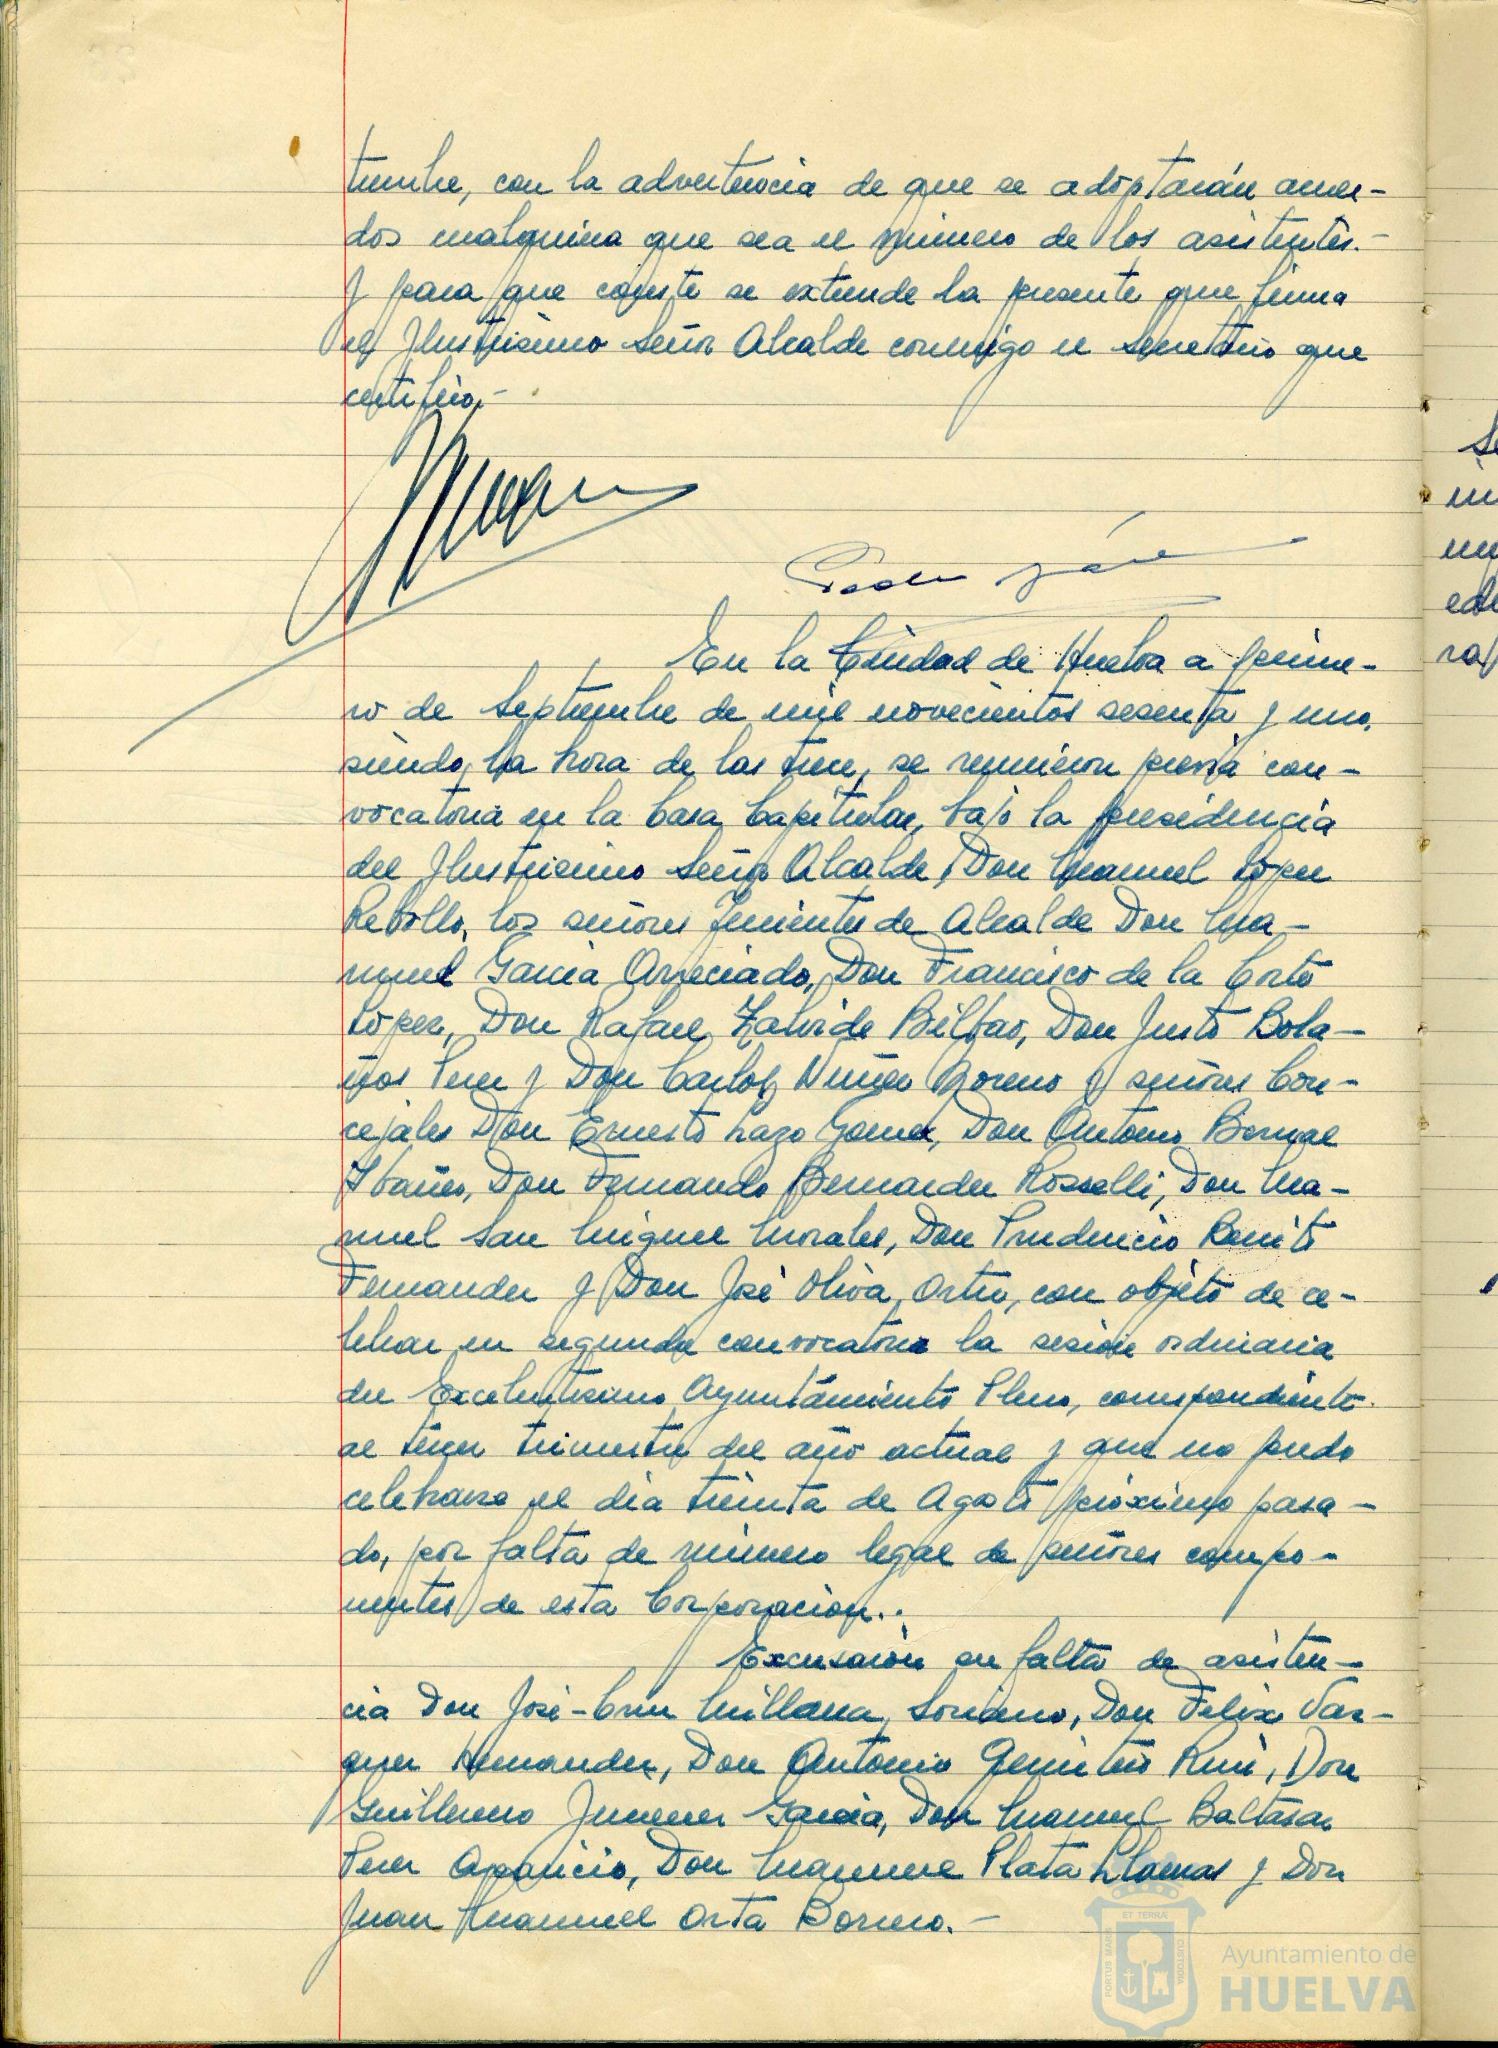 tiembre, con la advertencia de que se adoptarán acuer-
dos cualquiera que sea el número de los asistentes.-
Y para que conste se extiende la presente que firma
el Ilustrisimo Señor Alcalde conmigo el Secretario que
certifico.-
Pedro
En la Ciudad de Huelva a prime-
ro de Septiembre de mil novecientos sesenta y uno,
siendo la hora de las trece, se reunieron previa con-
vocatoria en la Casa Capitular, bajo la presidencia
del Ilustrisimo Señor Alcalde, Don Manuel López
Rebollo, los señores Tenientes de Alcalde Don Ma-
nuel Garcia Arreciado, Don Francisco de la Corte
López, Don Rafael Zalvide Bilbao, Don Justo Bola-
ños Perez y Don Carlos Nuñez Moreno y señores Con-
cejales Don Ernesto Lazo Gomez, Don Antonio Bernal
Ibañez, Don Fernando Bernardez Rosselli, Don Ma-
nuel San Miguel Morales, Don Prudencio Benito
Fernandez y Don José Oliva Ortiz, con objeto de ce-
lebrar en segunda convocatoria la sesión ordinaria
del Excelentisimo Ayuntamiento Pleno, correspondiente
al tercer trimestre del año actual y que no pudo
celebrarse el dia treinta de Agosto próximo pasa-
do, por falta de número legal de señores compo-
nentes de esta Corporación.-
Excusaron su falta de asisten-
cia Don José-Cruz Millana Soriano, Don Felix Vaz-
quez Hernandez, Don Antonio Ruiz, Don
Guillermo Jimenez Garcia, Don Manuel Baltasar
Perez Aparicio, Don Manuel Plata Llamas y Don
Juan Manuel Orta Borrero.-
ET TERRÆ
PORTUS MARIS
CUSTODIA
Ayuntamiento de
HUELVA